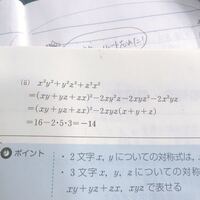 (ii) x²y²+y²z²+z²x²
=(xy+yz+zx)²−2xy²z−2xyz²−2x²yz
=(xy+yz+zx)²−2xyz(x+y+z)
=16−2·5·3=−14
ポイント
・2文字x, yについての対称式は,
・3文字x, y, zについての対称
xy+yz+zx, xyzで表せる